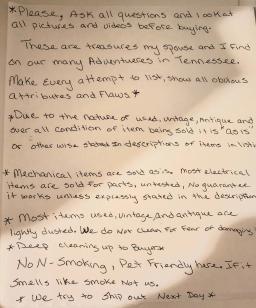 *Please, Ask all questions and look at
all pictures and videos before buying.
These are treasures my spouse and I find
on our many Adventures in Tennessee.
Make Every attempt to list, show all obvious
attributes and Flaws *
*Due to the nature of used, vintage, Antique and
over all condition of item being sold it is "as is"
or other wise stated in descriptions of items in listi
* Mechanical items are sold as is. most electrical
items are sold for parts, untested, No guarantee
it works unless expressly stated in the description
* Most items used, vintage, and antique are
lightly dusted. We do Not clean for fear of damaging
*Deep cleaning up to Buyer*
No N-Smoking, Pet Friendly here. If it
smells like smoke Not us.
* We try to Ship out Next Day *